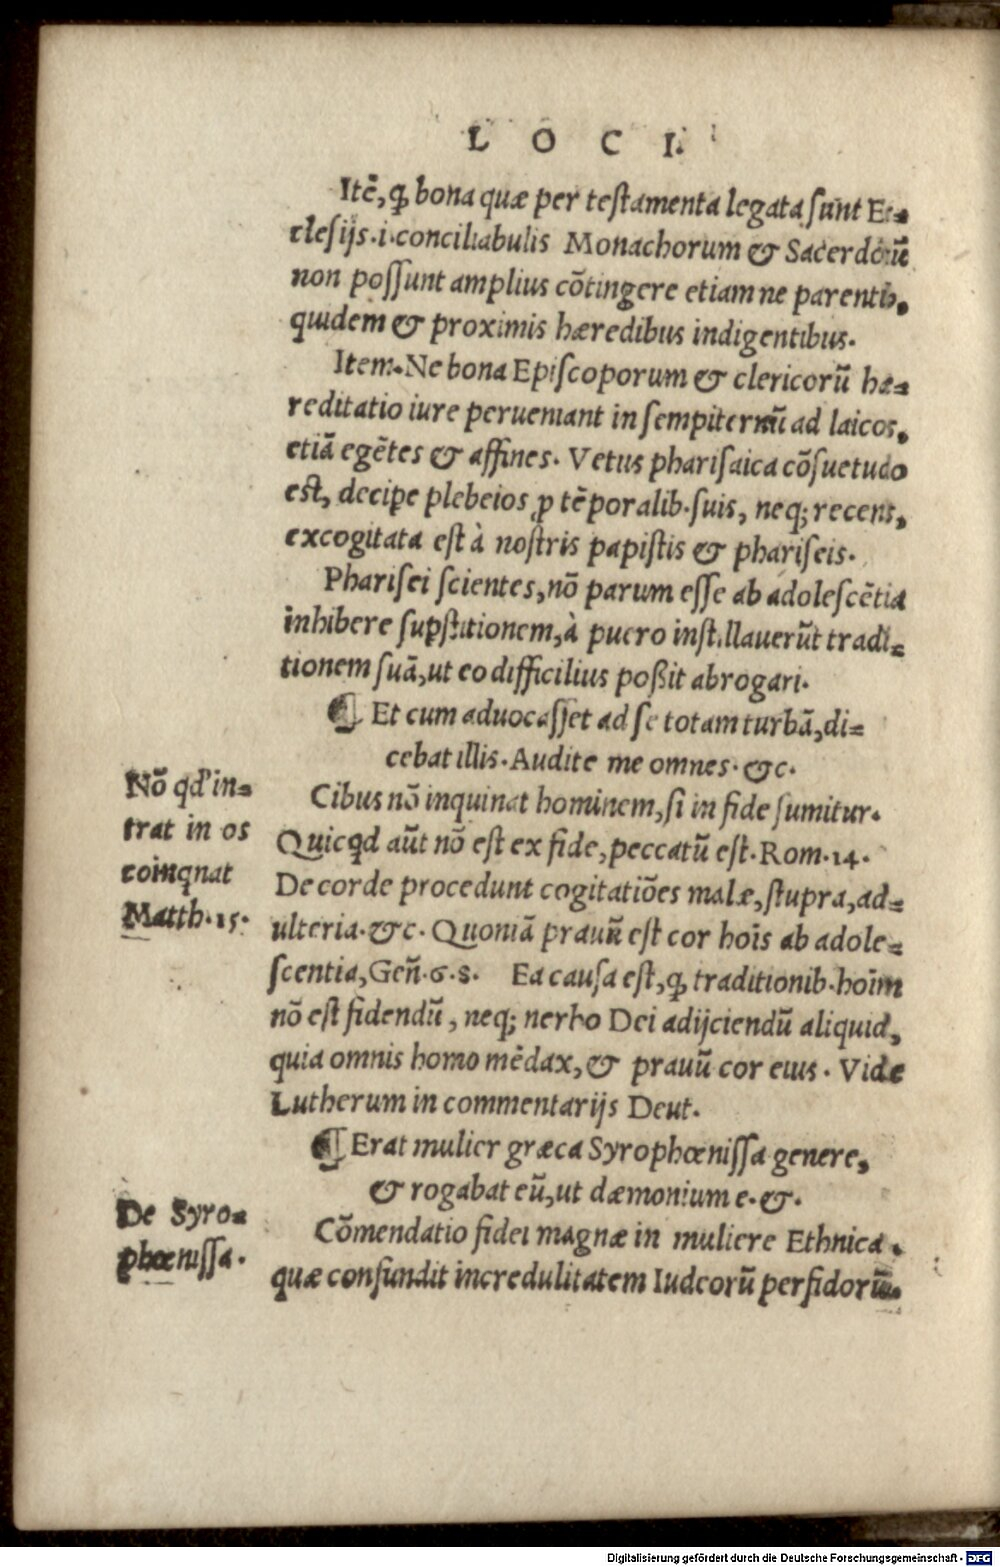 LOCI.
Itē, ꝙ bona quæ per testamenta legata sunt Ec=
clesijs .i. conciliabulis Monachorum & Sacerdotū
non possunt amplius cōtingere etiam ne parentib.
quidem & proximis hæredibus indigentibus.
Item. Ne bona Episcoporum & clericorū hæ=
reditatio iure perueniant in sempiternū ad laicos,
etiā egētes & affines. Vetus pharisaica cōsuetudo
est, decipe plebeios ꝓ tēporalib. suis, neq; recens,
excogitata est à nostris papistis & phariseis.
Pharisei scientes, nō parum esse ab adolescētia
inhibere supstitionem, à puero instillauerūt tradi=
tionem suā, ut eo difficilius poßit abrogari.
¶ Et cum aduocasset ad se totam turbā, di=
cebat illis. Audite me omnes. &c.
Nō qd' in=
trat in os
coinqnat
Matth. 15.
Cibus nō inquinat hominem, si in fide sumitur.
Quicqd aūt nō est ex fide, peccatū est. Rom. 14.
De corde procedunt cogitatiōes malæ, stupra, ad=
ulteria. &c. Quoniā prauū est cor hoīs ab adole=
scentia, Geñ. 6. 8. Ea causa est, ꝙ traditionib. hoīm
nō est fidendū, neq; uerbo Dei adijciendū aliquid,
quia omnis homo mēdax, & prauū cor eius. Vide
Lutherum in commentarijs Deut.
¶ Erat mulier græca Syrophœnissa genere,
& rogabat eū, ut dæmonium e. &.
De Syro=
phœnissa.
Cōmendatio fidei magnæ in muliere Ethnica.
quæ confundit incredulitatem Iudeorū perfidorū.
Digitalisierung gefördert durch die Deutsche Forschungsgemeinschaft - DFG